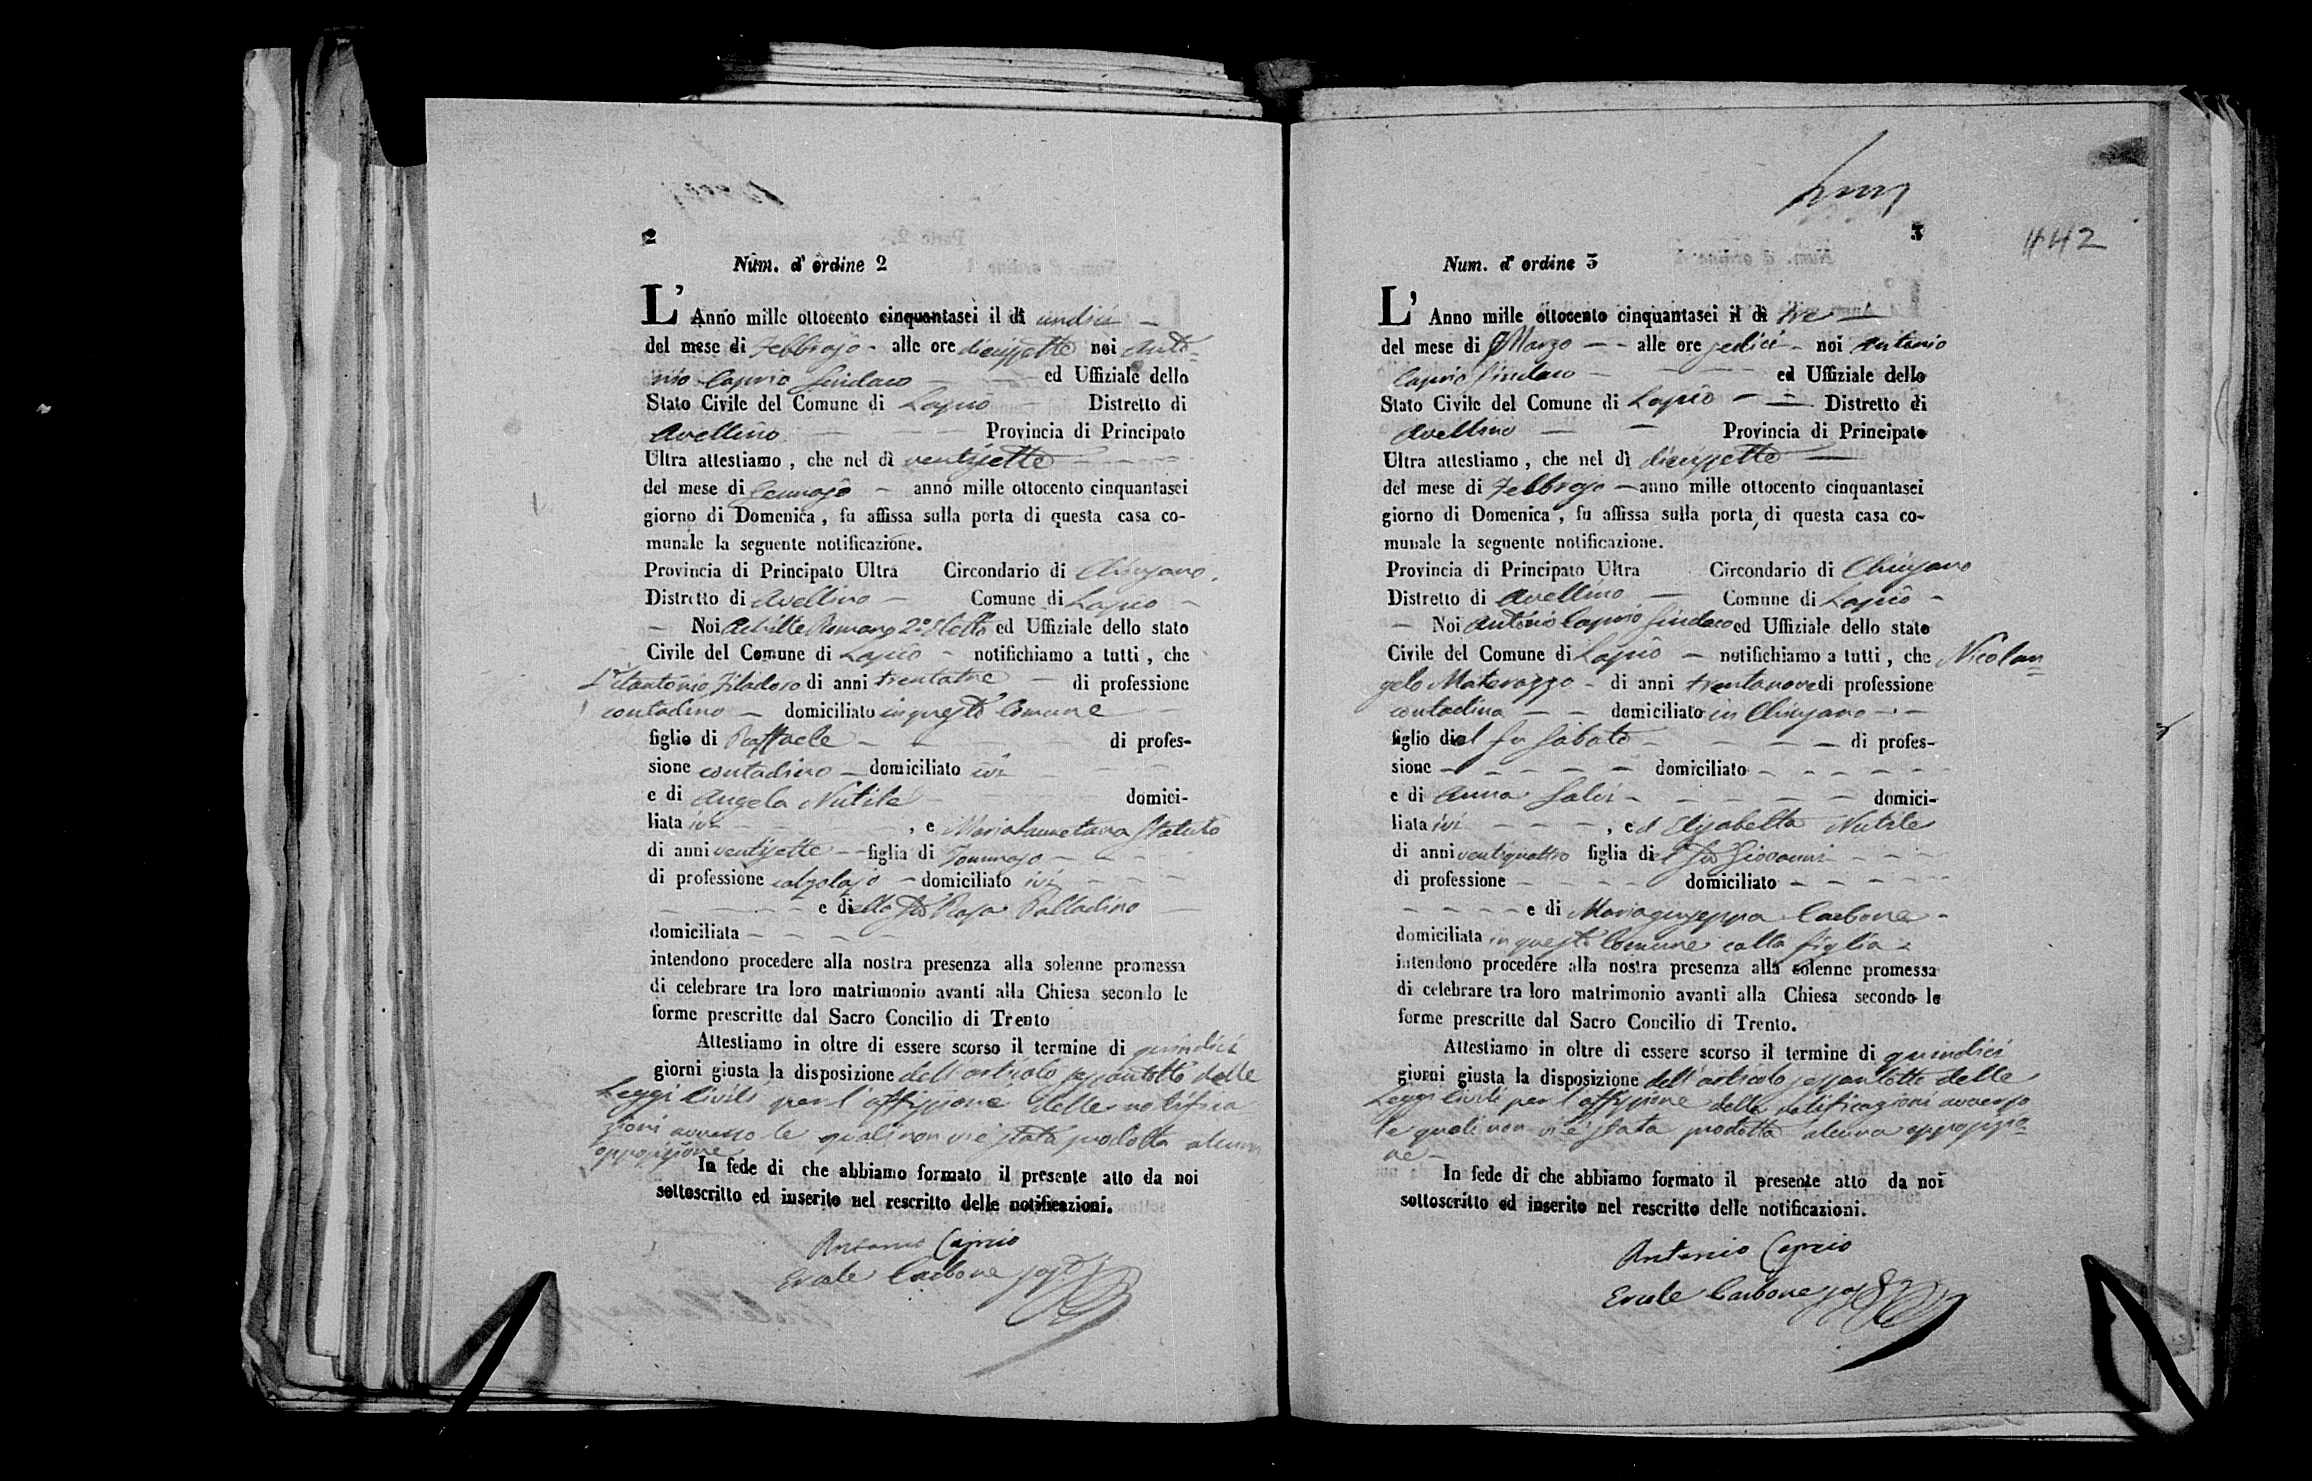 2
Num. d'ordine 2
L'Anno mille ottocento cinquantasei il dì undici
del mese di Febbrajo alle ore diecissette noi Anto-
nio Caprio Sindaco ed Uffiziale dello
Stato Civile del Comune di Lapio Distretto di
Avellino Provincia di Principato
Ultra attestiamo, che nel dì ventisette
del mese di Gennajo anno mille ottocento cinquantasei
giorno di Domenica, fu affissa sulla porta di questa casa co-
munale la seguente notificazione.
Provincia di Principato Ultra Circondario di Chiusano
Distretto di Avellino Comune di Lapio
Noi Achille Romano 2° Eletto ed Uffiziale dello stato
Civile del Comune di Lapio notifichiamo a tutti, che
Vitantonio Filadoro di anni trentatre di professione
contadino domiciliato in questo Comune
figlio di Raffaele di profes-
sione contadino domiciliato ivi
e di Angela Nutile domici-
liata ivi, e Maria Lauretana Statuto
di anni ventisette figlia di Tommaso
di professione calzolajo domiciliato ivi
e della fu Rosa Palladino
domiciliata
intendono procedere alla nostra presenza alla solenne promessa
di celebrare tra loro matrimonio avanti alla Chiesa secondo le
forme prescritte dal Sacro Concilio di Trento
Attestiamo in oltre di essere scorso il termine di quindici
giorni giusta la disposizione dell'articolo sessantotto delle
Leggi Civili per l'affissione delle notifica
zioni avverso le quali non vi è stata prodotta alcuna
opposizione
In fede di che abbiamo formato il presente atto da noi
sottoscritto ed inserito nel rescritto delle notificazioni.
Antonio Caprio
Ercole Carbone
3
442
Num. d'ordine 3
L'Anno mille ottocento cinquantasei il dì tre
del mese di Marzo alle ore sedici noi Antonio
Caprio Sindaco ed Uffiziale dello
Stato Civile del Comune di Lapio Distretto di
Avellino Provincia di Principato
Ultra attestiamo, che nel dì diecissette
del mese di Febbrajo anno mille ottocento cinquantasei
giorno di Domenica, fu affissa sulla porta di questa casa co-
munale la seguente notificazione.
Provincia di Principato Ultra Circondario di Chiusano
Distretto di Avellino Comune di Lapio
Noi Antonio Caprio Sindaco ed Uffiziale dello stato
Civile del Comune di Lapio notifichiamo a tutti, che Nicolan-
gelo Materazzo di anni trentanove di professione
contadino domiciliato in Chiusano
figlio del fu Sabato di profes-
sione domiciliato
e di Anna Salvi domici-
liata ivi, ed Elisabetta Nutile
di anni ventiquattro figlia del fu Giovanni
di professione domiciliato
e di Mariagiuseppa Carbone
domiciliata in questo Comune colla figlia
intendono procedere alla nostra presenza alla solenne promessa
di celebrare tra loro matrimonio avanti alla Chiesa secondo le
forme prescritte dal Sacro Concilio di Trento.
Attestiamo in oltre di essere scorso il termine di quindici
giorni giusta la disposizione dell'articolo sessantotto delle
Leggi Civili per l'affissione delle notificazioni avverso
le quali non vi è stata prodotta alcuna opposizio-
ne
In fede di che abbiamo formato il presente atto da noi
sottoscritto ed inserito nel rescritto delle notificazioni.
Antonio Caprio
Ercole Carbone